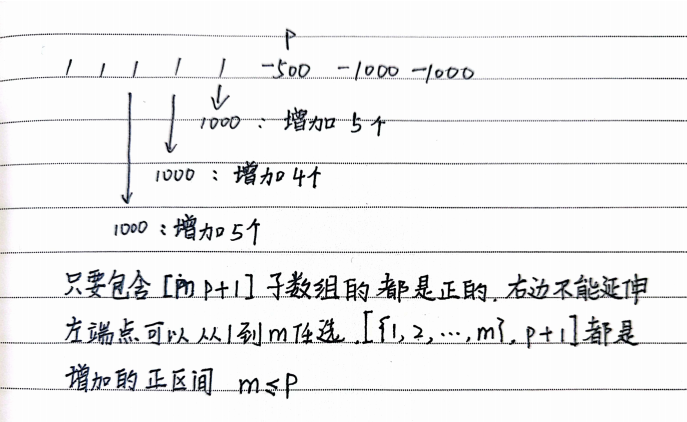 P
1 1 1 1 1 -500 -1000 -1000
1000 : 增加 5个
1000 : 增加4个
1000 : 增加5个
只要包含 [m p+1] 子数组的都是正的. 右边不能延伸
左端点可以从1到m任选. [{1, 2, ..., m}, p+1] 都是
增加的正区间 m≤P